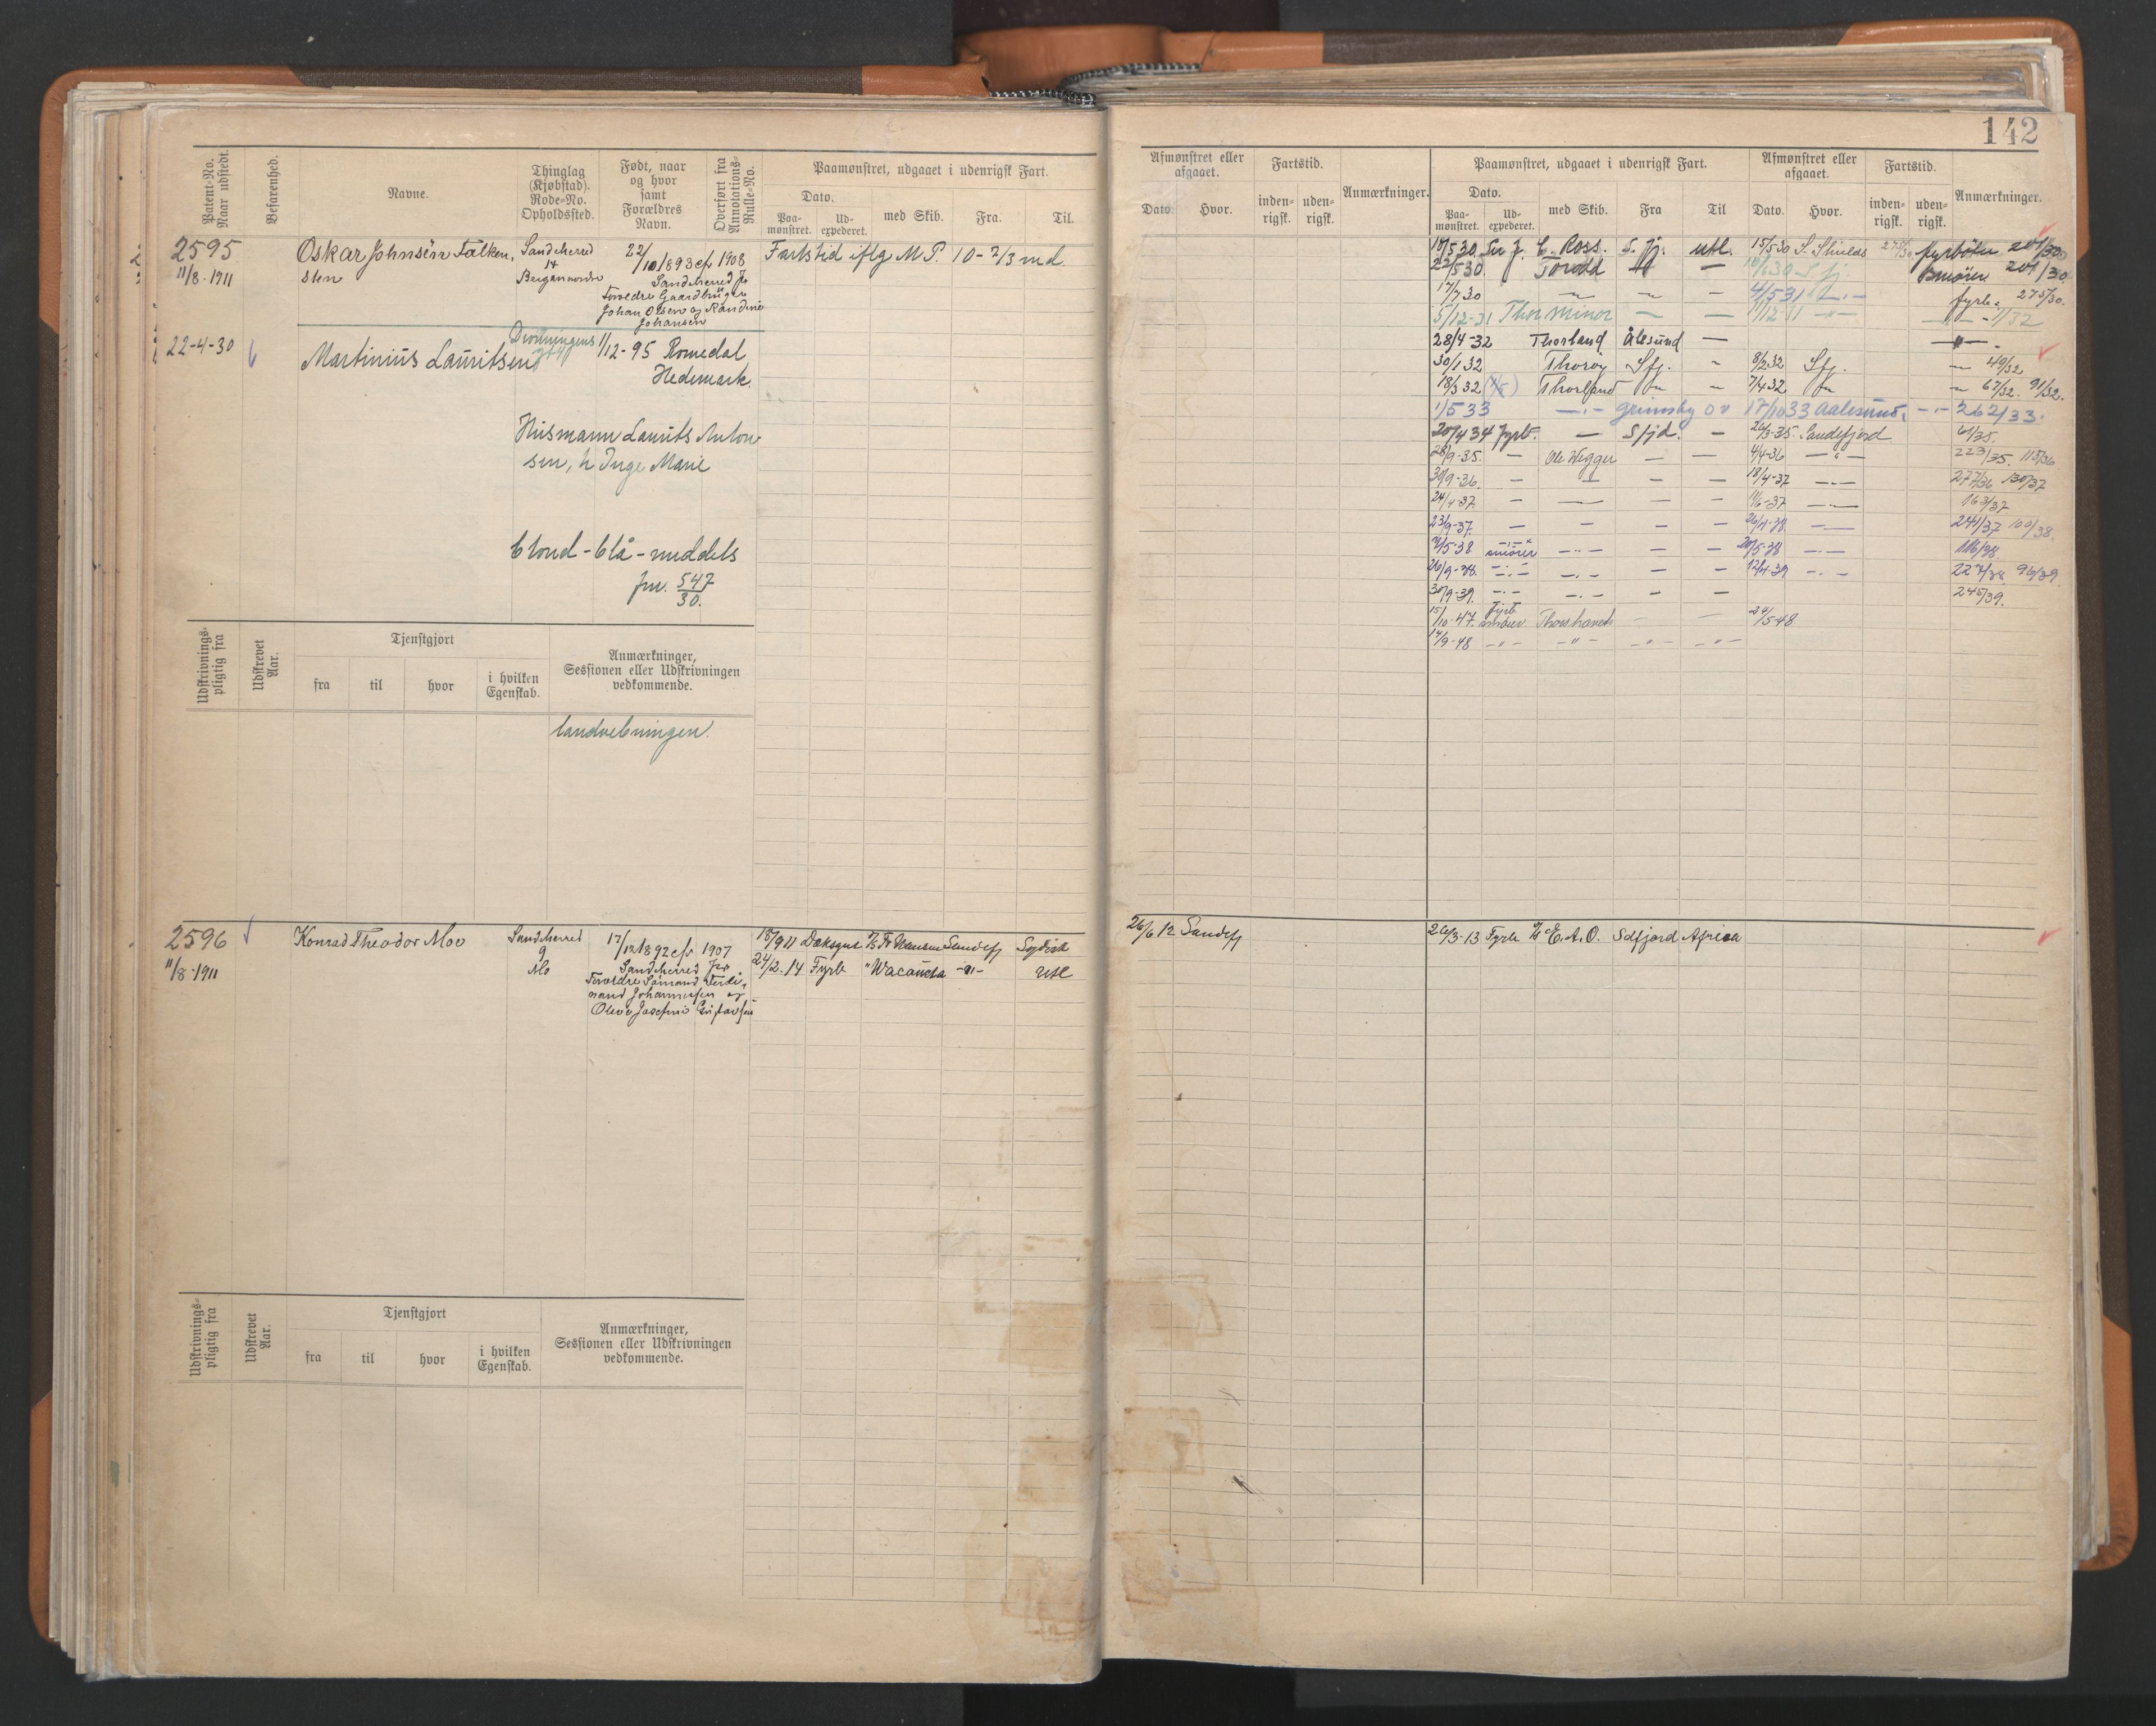 Patent-No. Naar udstedt.
Befarenhed.
Navne.
Thinglag (Kjøbstad). Rode-No. Opholdssted.
Født, naar og hvor samt Forældres Navn.
Overført fra Annotations-Rulle-No.
Paamønstret, udgaaet i udenrigsk Fart.
Dato.
Paa-mønstret. Ud-expederet. med Skib. Fra. Til.
2595
11/8-1911
Oskar Johnsen Falken,
sten
Sandeherred
14
22/10 1893 1908
Sandeherred
Forældre Gaardbruger
Johan Olsen og Randine
Johansen
Fartstid iflg M.P. 10-2/3 md.
22-4-30
Martinius Lauritsen
Dronningens
1/12-95 Romedal
Hedemark.
Husmann Laurits Anton
sen, h Inge Marie
blond-blå-middels
jnr. 547
30.
Udskrivnings-pligtig fra
Udskrevet Aar.
Tjenstgjort
fra til hvor i hvilken Egenskab.
Anmærkninger, Sessionen eller Udskrivningen vedkommende.
landvebningen.
2596
11/8-1911
Konrad Theodor Moo
Sandeherred
9
Mo
17/12 1892 1907
Sandeherred
Forældre Sømand Ferdi,
nand Johannesen og
Oleve Josefine Gustavsen
18/9 11 Dæksgut Sandefj Sydisk
24/2.14 Fyrb "Wacousta -"- utl
Udskrivnings-pligtig fra
Udskrevet Aar.
Tjenstgjort
fra til hvor i hvilken Egenskab.
Anmærkninger, Sessionen eller Udskrivningen vedkommende.
142
Afmønstret eller afgaaet.
Fartstid.
Dato. Hvor. inden-rigsk. uden-rigsk. Anmærkninger.
Paamønstret, udgaaet i udenrigsk Fart.
Afmønstret eller afgaaet.
Fartstid.
Dato.
Paa-mønstret. Ud-expederet. med Skib. Fra Til Dato. Hvor. inden-rigsk. uden-rigsk. Anmærkninger.
18/5 30 Sir J. C. Ross. S. fj. utl. 15/5 30 S. Shields fyrbøter 201/30
22/5 30 Torodd — 30 S fj. 201/30
17/7 30 — — — 4/5 31 —"— fyrb. 275/30.
5/12-31 Thor minor — — -"- 1/32
28/4-32 Thorland Ålesund — —"—
30/1 32 Thorøy Sfj. - 8/2 32 Sfj. — 49/32
18/3 32 Thorland — — 7/4 32 — — 67/32. 91/32.
1/5 33 —"— Grimsby 17/10 33 Aalesund, -"- 262/33.
20/4 34 fyrb. — Sfjd. — 26/3-35. Sandefjord 61/35.
28/9-35. — Ole Wegger — — 4/4-36 —"— 223/35. 115/36
30/9-36. — — — — 18/4-37 —"— 277/36 130/37
24/4-37 — — — — 11/6-37 —"— 163/37
23/9-37. — — — — 26/4-38 —"— 241/37 100/38.
4/5-38 smører -"- — — 20/5-38 -"- 116/38.
26/9-38. -"- -"- — — 12/4-39 -"- 227/38 96/39
30/9-39. -"- -"- — — 245/39.
15/10-47. fyrb. smører Thorshavet — — 24/5-48
14/9-48 -"- -"- -"- -"-
26/6 12 Sandefj
26/3-13 Fyrb E.A.O. Sdfjord Africa